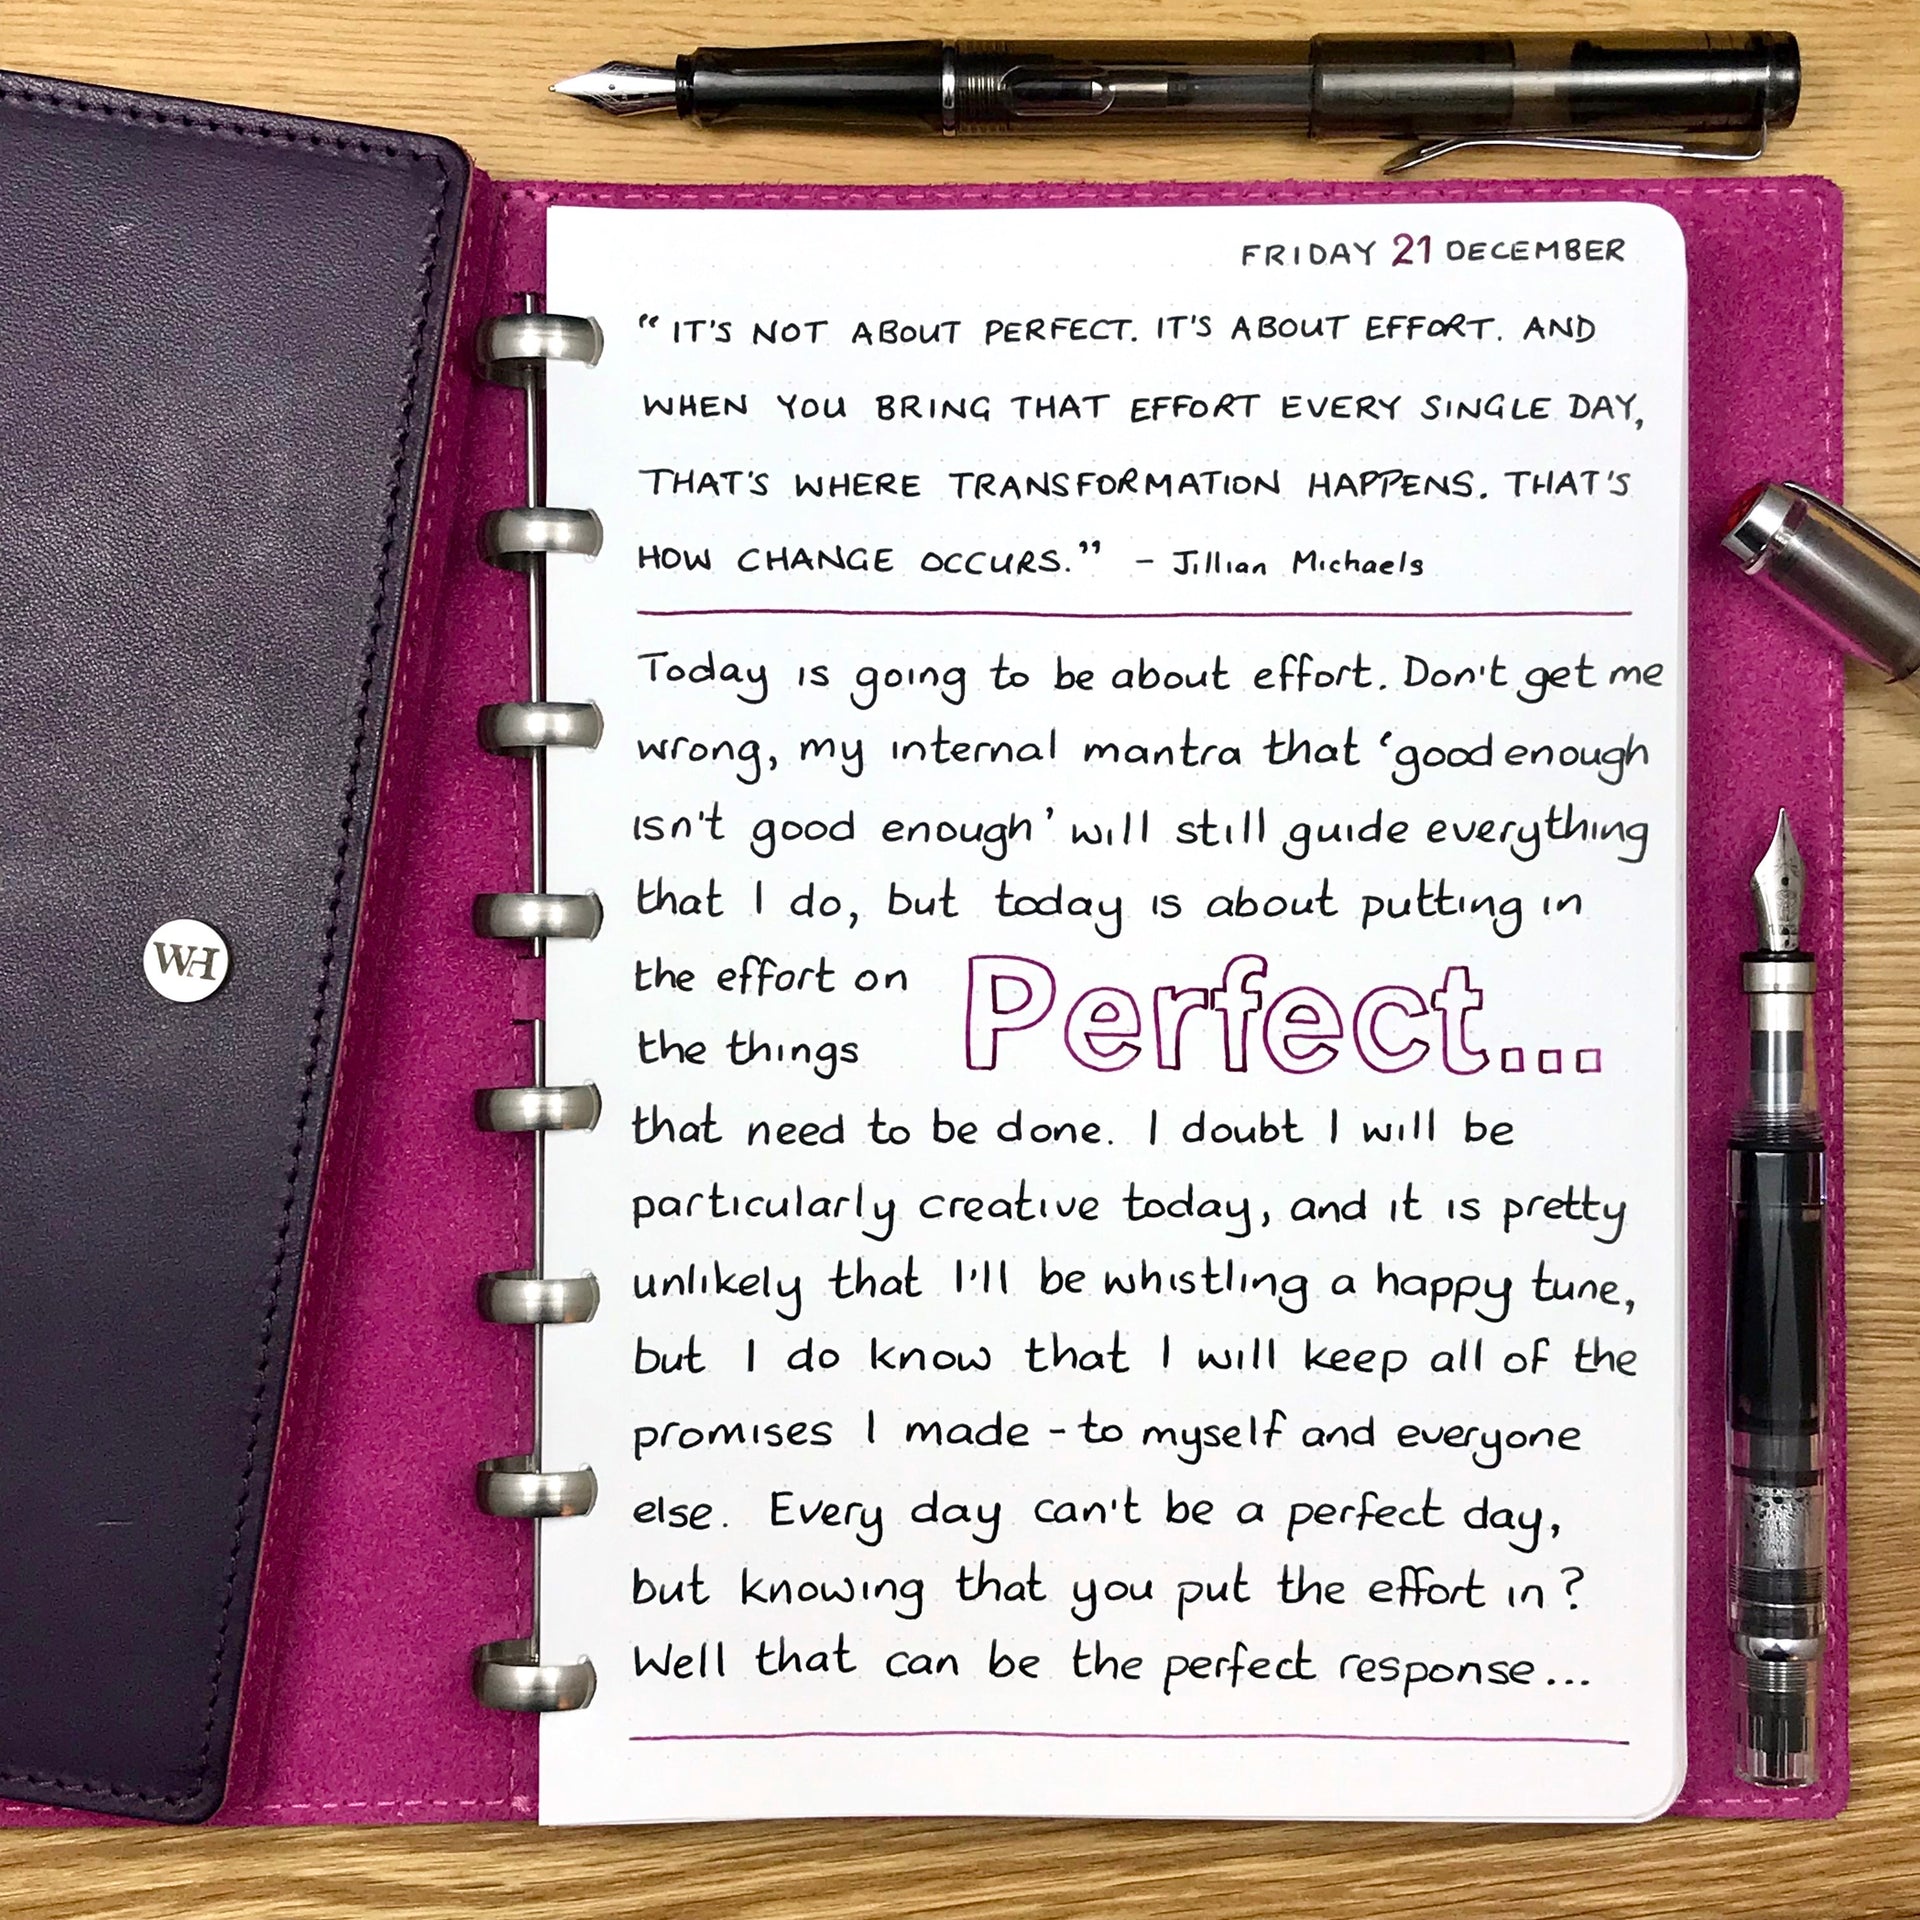 FRIDAY 21 DECEMBER
“IT'S NOT ABOUT PERFECT. IT'S ABOUT EFFORT. AND
WHEN YOU BRING THAT EFFORT EVERY SINGLE DAY,
THAT'S WHERE TRANSFORMATION HAPPENS. THAT'S
HOW CHANGE OCCURS.” - Jillian Michaels
Today is going to be about effort. Don't get me
wrong, my internal mantra that ‘good enough
isn't good enough’ will still guide everything
that I do, but today is about putting in
the effort on
the things
Perfect...
that need to be done. I doubt I will be
particularly creative today, and it is pretty
unlikely that I'll be whistling a happy tune,
but I do know that I will keep all of the
promises I made - to myself and everyone
else. Every day can't be a perfect day,
but knowing that you put the effort in?
Well that can be the perfect response...
WH